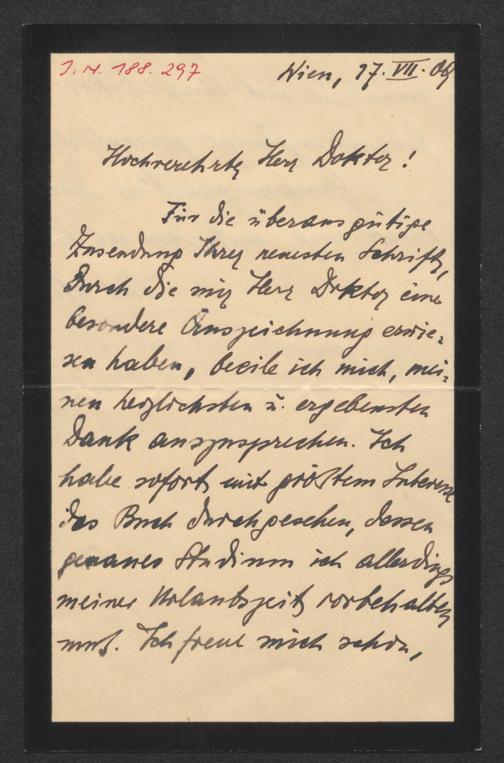 J.N. 188.297
Wien, 17. VII. 09
Hochverehrter Herr Doktor!
Für die überaus gütige
Zusendung Ihrer neuesten Schrift,
durch die mir Herr Doktor eine
besondere Auszeichnung erwie-
sen haben, beeile ich mich, mei-
nen herzlichsten u. ergebensten
Dank auszusprechen. Ich
habe sofort mit größtem Interesse
das Buch durchgesehen, dessen
genaues Studium ich allerdings
meiner Urlaubszeit vorbehalten
muß. Ich freue mich schon,